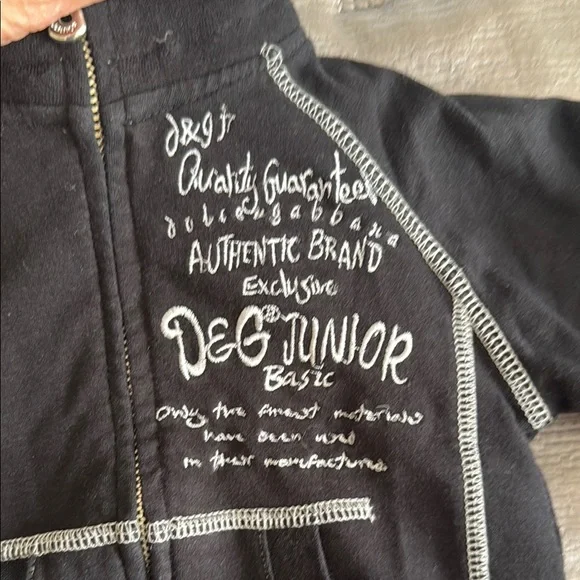 d&g jr
Quality Guarantee
dolce&gabbana
AUTHENTIC BRAND
Exclusive
D&G® JUNIOR
Basic
Only the finest materials
have been used
in their manufactures